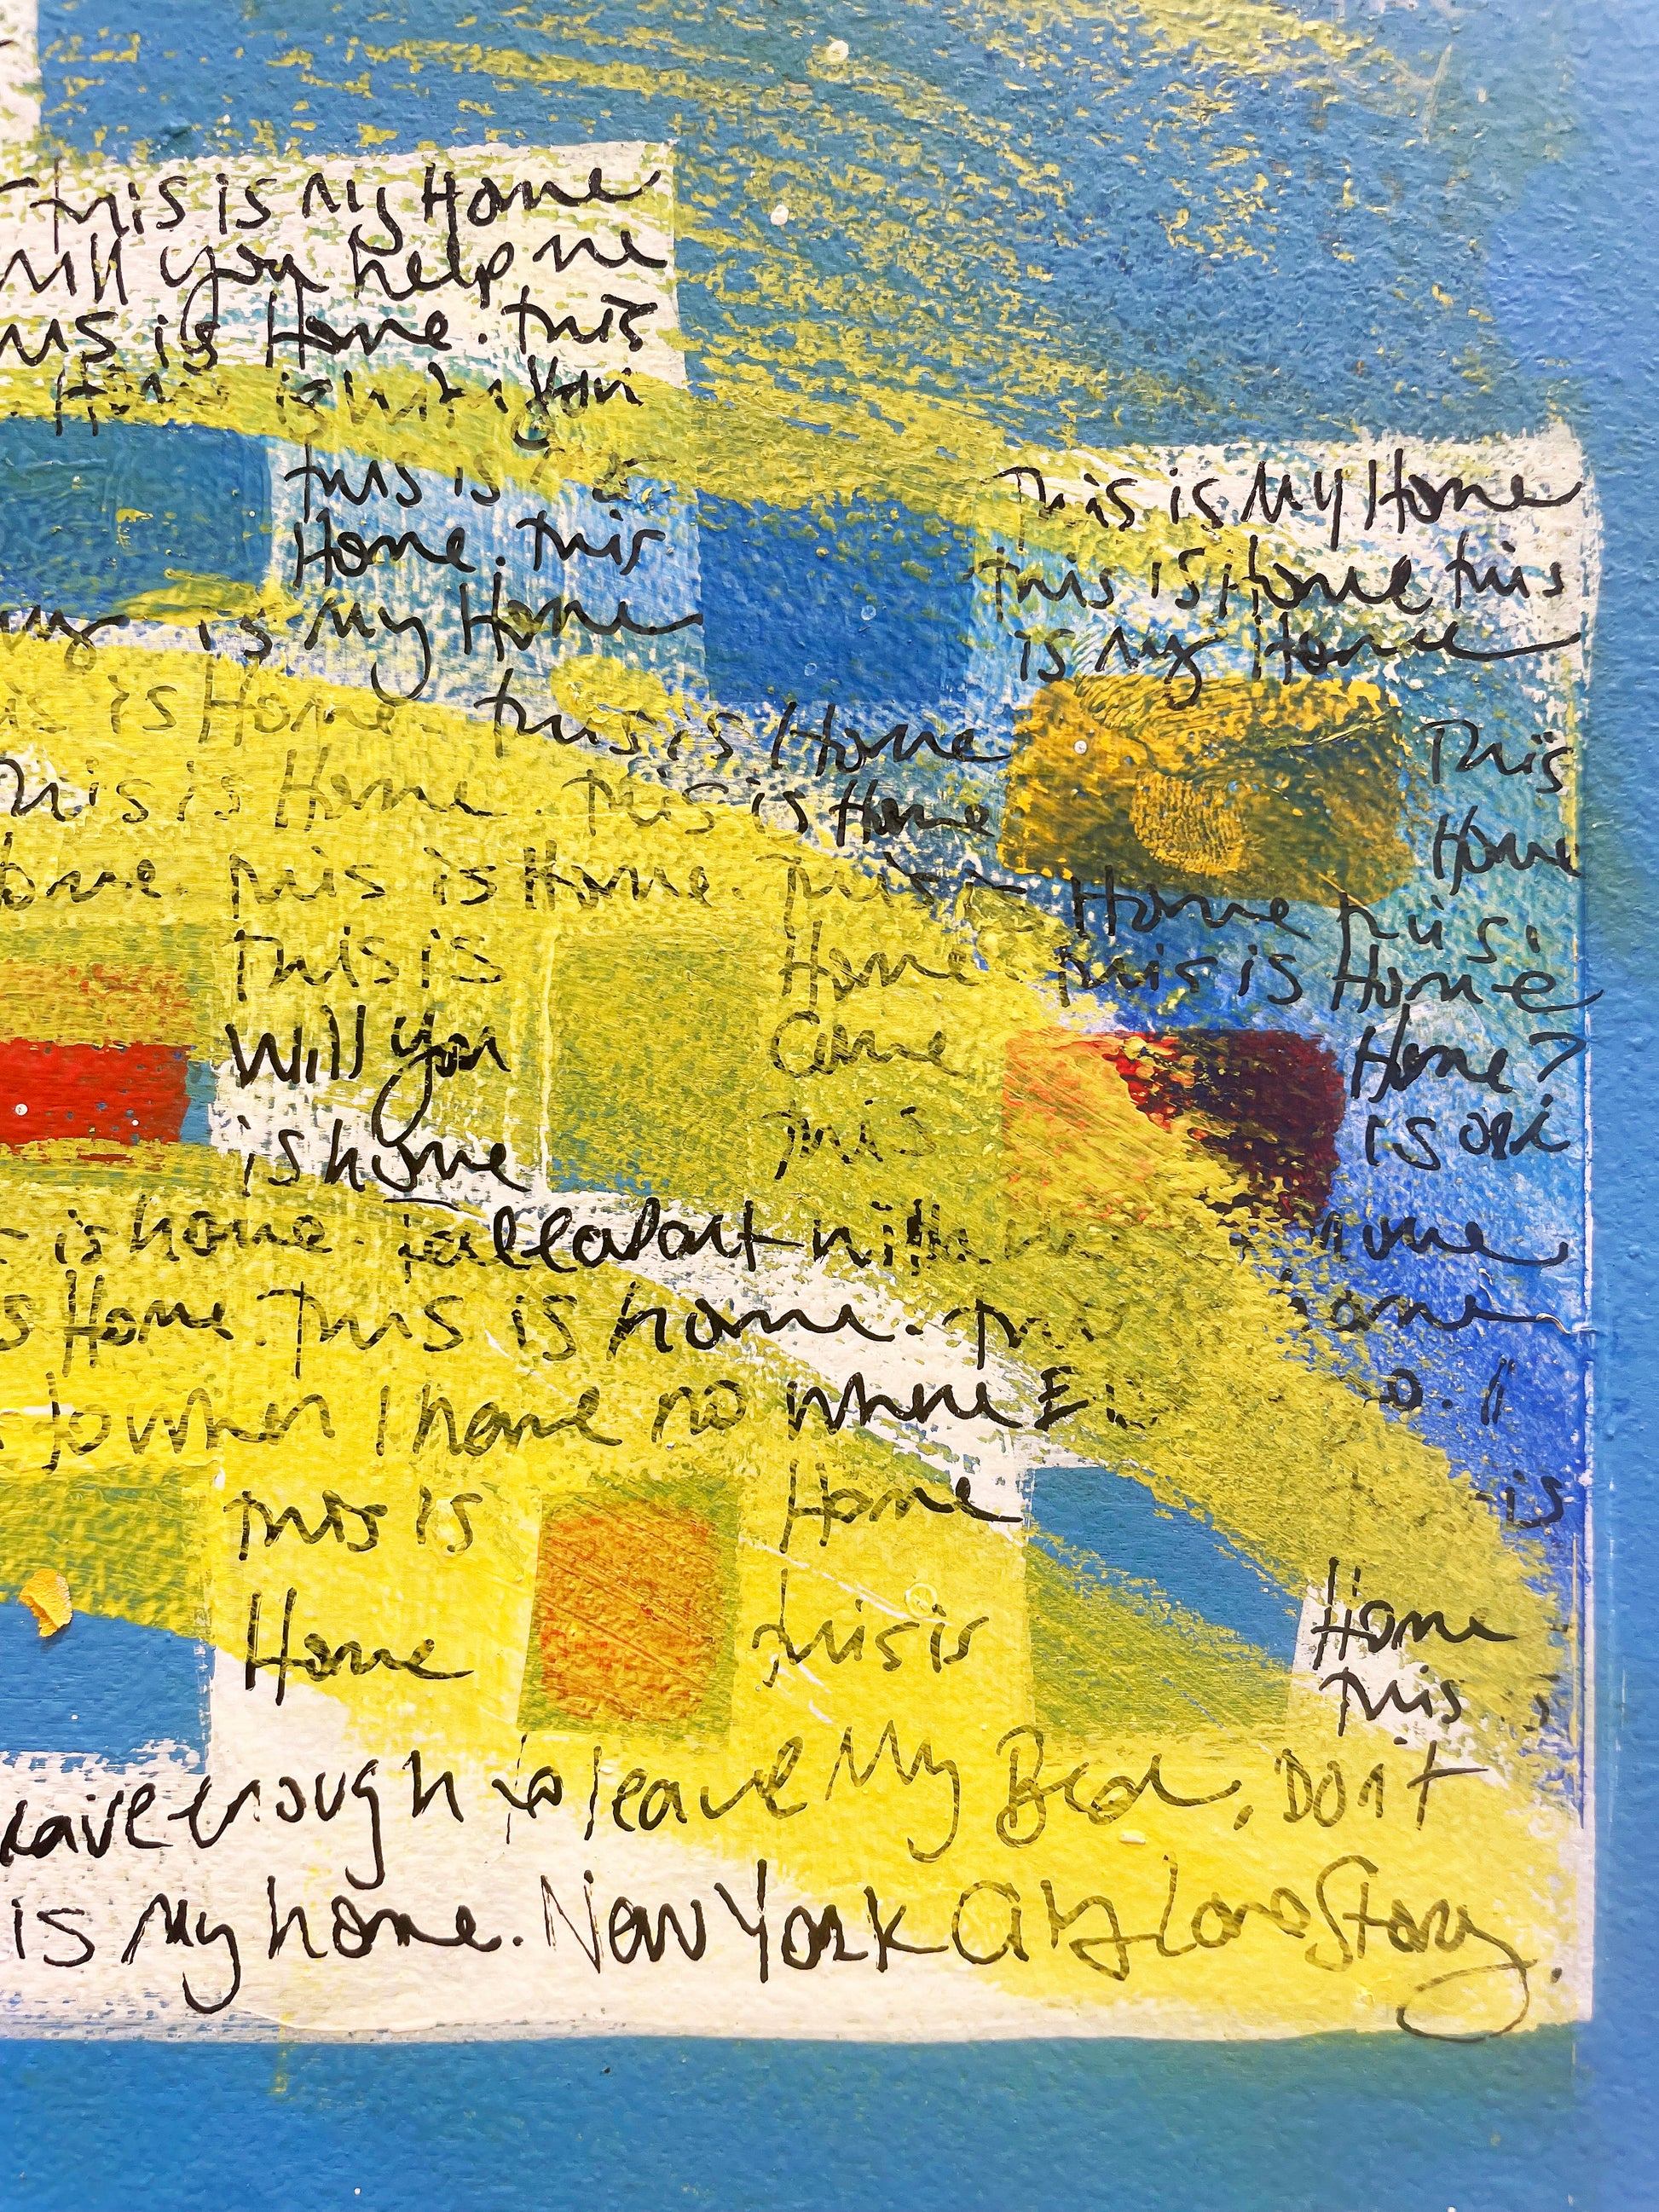 this is My Home
will you help me
is Home. this
Home is
this is
Home. this
is My Home
This is My Home
this is Home this
is My Home
is Home. this is Home
This
This is Home. This is Home
Home
Home. This is Home. This Home This
This is Home this is Home
Will you Came Home?
is home this is
is home. fall apart with home
Home. This is home. home
when I have no where
This is Home is
Home this is Home
This
enough to leave My Bed, Don't
is My home. New York City Love Story.